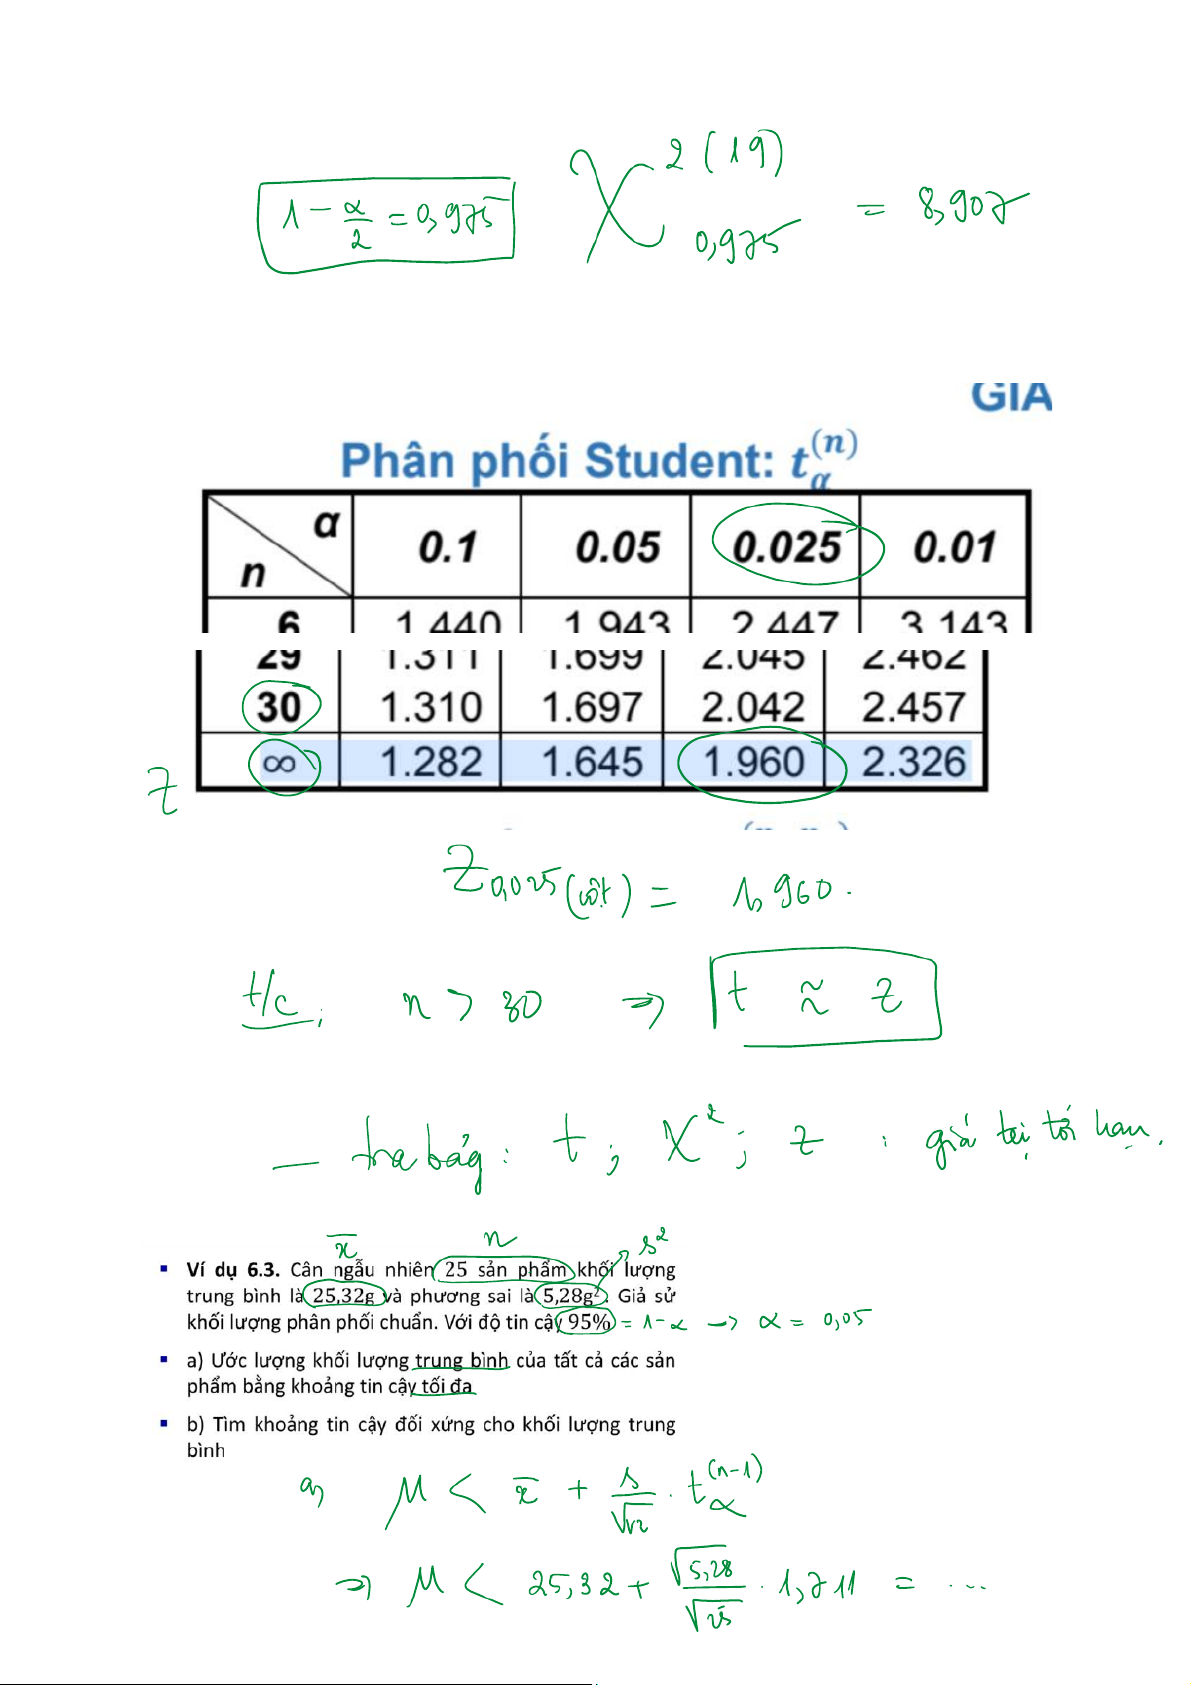 1 - α/2 = 0,975
χ² (19) 0,975 = 8,907
GIÁ
Phân phối Student: t α (n)
α n 0.1 0.05 0.025 0.01
6 1.440 1.943 2.447 3.143
29 1.311 1.699 2.045 2.462
30 1.310 1.697 2.042 2.457
Z ∞ 1.282 1.645 1.960 2.326
Z 0,025 (cột) = 1,960.
t/c: n > 30 => t ≈ z
- tra bảg: t ; χ² ; z : giá trị tới hạn.
x̄ n s²
Ví dụ 6.3. Cân ngẫu nhiên 25 sản phẩm khối lượng
trung bình là 25,32g và phương sai là 5,28g². Giả sử
khối lượng phân phối chuẩn. Với độ tin cậy 95% = 1-α -> α = 0,05
a) Ước lượng khối lượng trung bình của tất cả các sản
phẩm bằng khoảng tin cậy tối đa
b) Tìm khoảng tin cậy đối xứng cho khối lượng trung
bình
a) μ < x̄ + s/√n . t α (n-1)
=> μ < 25,32 + √5,28/√25 . 1,711 = ...